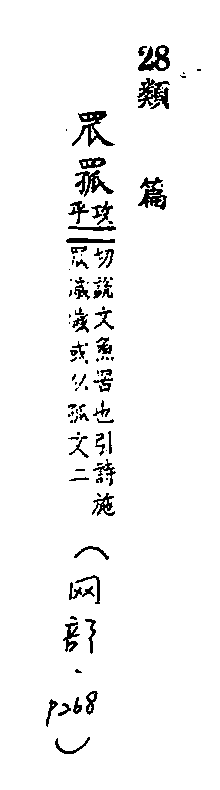 28類篇
罛
攻乎
切說文魚罟也引詩施
罛濊濊或从孤文二
(网部.p268)